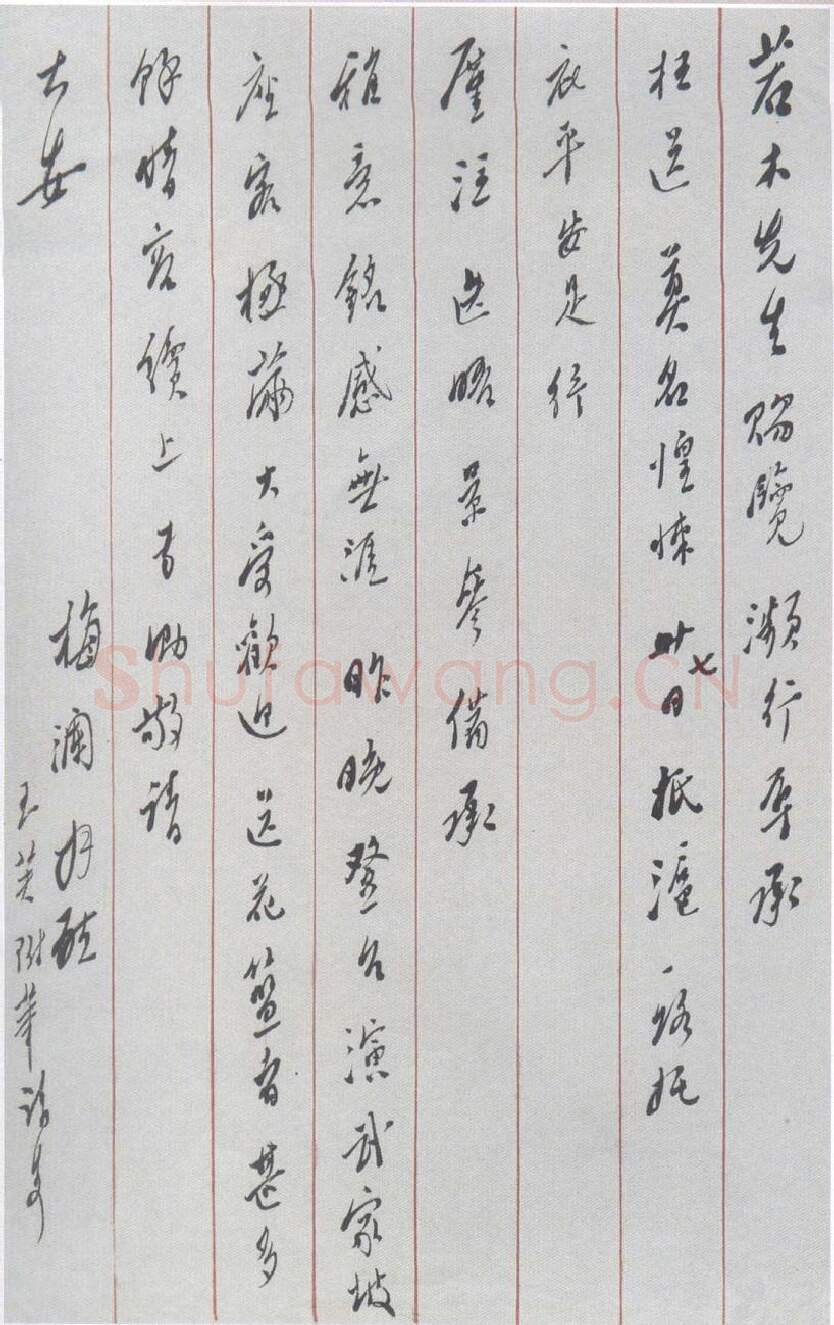 若木先生賜覽瀕行辱承
枉送莫名惶悚廿七日抵滬一路托
衣平安足紓
廑注迭晤景岑備承
雅意銘感無涯昨晚登台演武家坡
座客極滿大受歡迎送花籃者甚多
餘晴容續上專此敬請
大安
梅瀾好
玉芙附筆請安
Shufawang.CN